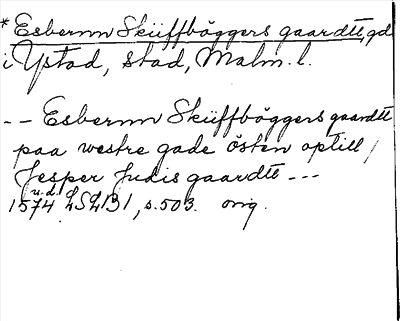 * Esbernn Skiiffböggers gaardtt, gd
i Ystad, stad, Malm. l.
-- Esbernn Skiiffböggers gaardtt
paa westre gade östen optill /
Jesper Judis gaardtt ---
u. d.
1574 LSLB1, s. 503. orig.